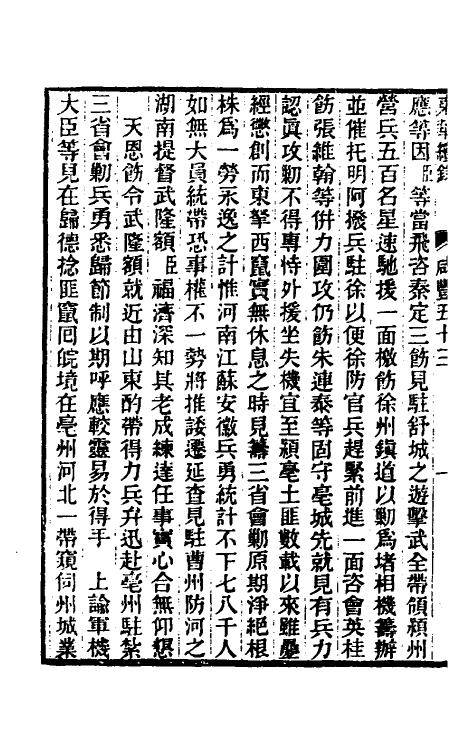 咸豐五十三
應等因臣等當飛咨秦定三飭見駐舒城之遊擊武全帶領潁州
營兵五百名星速馳援一面檄飭徐州鎮道以勦爲堵相機籌辦
並催托明阿撥兵駐徐以便徐防官兵趕緊前進一面咨會英桂
飭張維翰等併力圍攻仍飭朱連泰等固守亳城先就見有兵力
認眞攻勦不得專恃外援坐失機宜至潁亳土匪數載以來雖屢
經懲創而東拏西竄實無休息之時見籌三省會勦原期淨絕根
株爲一勞永逸之計惟河南江蘇安徽兵勇統計不下七八千人
如無大員統帶恐事權不一勢將推諉遷延查見駐曹州防河之
湖南提督武隆額臣福濟深知其老成練達任事實心合無仰懇
天恩飭令武隆額就近由山東酌帶得力兵弁迅赴亳州駐紮
三省會勦兵勇悉歸節制以期呼應較靈易於得手　上諭軍機
大臣等見在歸德捻匪竄囘皖境在亳州河北一帶窺伺州城業